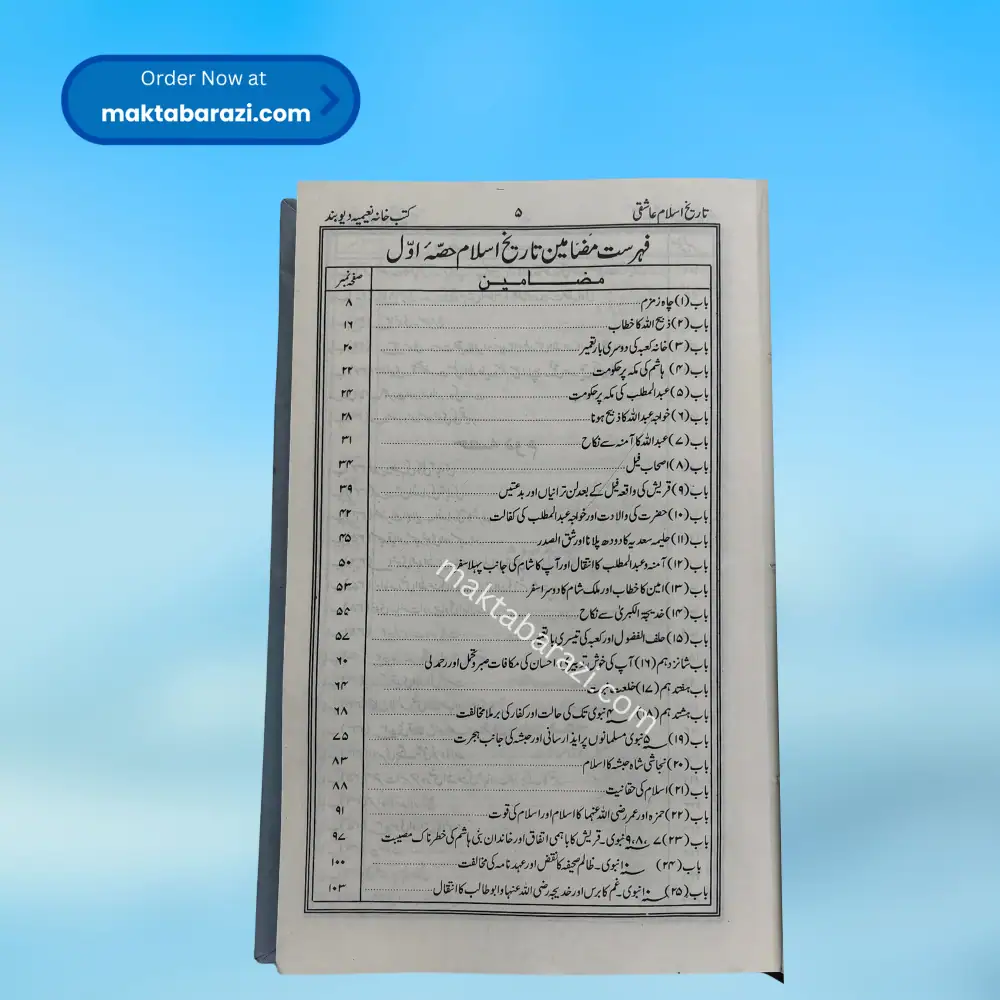 Order Now at
maktabarazi.com
تاریخ اسلام عاشقی ۵ کتب خانہ نعیمیہ دیوبند
فہرست مضامین تاریخ اسلام حصۂ اوّل
مضامین صفحہ نمبر
باب (۱) چاہ زمزم ۸
باب (۲) ذبیح اللہ کا خطاب ۱۶
باب (۳) خانہ کعبہ کی دوسری بار تعمیر ۲۰
باب (۴) ہاشم کی مکہ پر حکومت ۲۲
باب (۵) عبدالمطلب کی مکہ پر حکومت ۲۴
باب (۶) خواجہ عبداللہ کا ذبیح ہونا ۲۸
باب (۷) عبداللہ کا آمنہ سے نکاح ۳۱
باب (۸) اصحاب فیل ۳۴
باب (۹) قریش کی واقعہ فیل کے بعد لن ترانیاں اور بدعتیں ۳۹
باب (۱۰) حضرت کی ولادت اور خواجہ عبدالمطلب کی کفالت ۴۲
باب (۱۱) حلیمہ سعدیہ کا دودھ پلانا اور شق الصدر ۴۵
باب (۱۲) آمنہ وعبدالمطلب کا انتقال اور آپ کا شام کی جانب پہلا سفر ۵۰
باب (۱۳) امین کا خطاب اور ملک شام کا دوسرا سفر ۵۳
باب (۱۴) خدیجۃ الکبریٰ سے نکاح ۵۵
باب (۱۵) حلف الفضول اور کعبہ کی تیسری بار ۵۷
باب شانزدہم (۱۶) آپ کی خوش احسان کی مکافات صبر وتحمل اور رحمدلی ۶۰
باب ہفتدہم (۱۷) خلعت ۶۴
باب ہشتدہم (۱۸) ۴ نبوی تک کی حالت اور کفار کی برملا مخالفت ۶۸
باب (۱۹) ۵ نبوی مسلمانوں پر ایذا رسانی اور حبشہ کی جانب ہجرت ۷۵
باب (۲۰) نجاشی شاہ حبشہ کا اسلام ۸۳
باب (۲۱) اسلام کی حقانیت ۸۸
باب (۲۲) حمزہ اور عمر رضی اللہ عنہما کا اسلام اور اسلام کی قوت ۹۱
باب (۲۳) ۷، ۸، ۹ نبوی۔ قریش کا باہمی اتفاق اور خاندان بنی ہاشم کی خطرناک مصیبت ۹۷
باب (۲۴) ۱۰ نبوی۔ ظالم صحیفہ کا نقض اور عہد نامہ کی مخالفت ۱۰۰
باب (۲۵) ۱۰ نبوی۔ غم کا برس اور خدیجہ رضی اللہ عنہا و ابوطالب کا انتقال ۱۰۳
maktabarazi.com